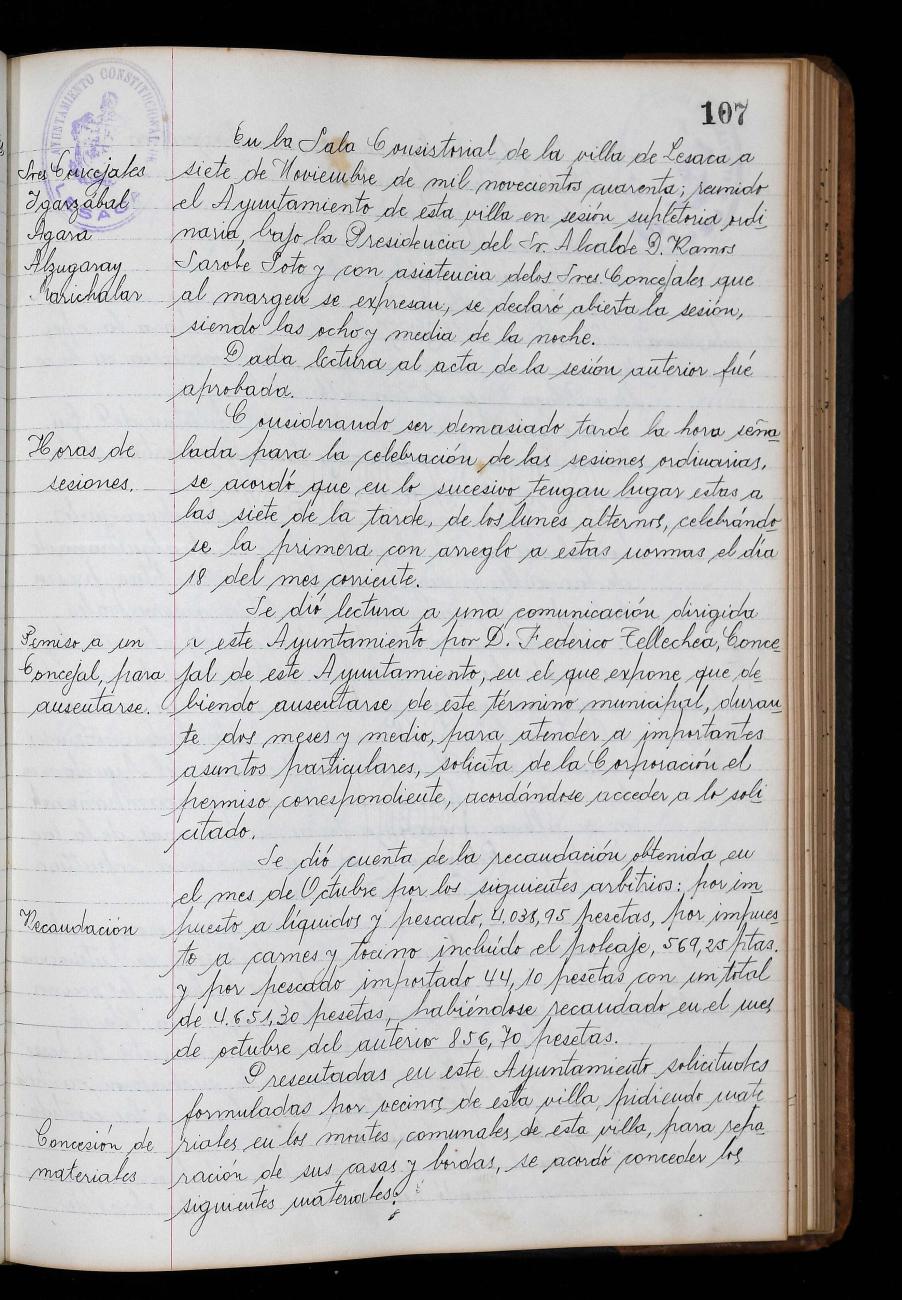 107
AYUNTAMIENTO CONSTITUCIONAL DE
LESACA
Sres Concejales
Igarzábal
Agara
Alzugaray
Marichalar
En la Sala Consistorial de la villa de Lesaca a
siete de Noviembre de mil novecientos cuarenta; reunido
el Ayuntamiento de esta villa en sesión supletoria ordi
naria, bajo la Presidencia del Sr. Alcalde D. Ramos
Sarobe Soto y con asistencia de los Sres. Concejales que
al margen se expresan, se declaró abierta la sesión,
siendo las ocho y media de la noche.
Dada lectura al acta de la sesión anterior fué
aprobada.
Horas de
sesiones.
Considerando ser demasiado tarde la hora seña
lada para la celebración de las sesiones ordinarias,
se acordó que en lo sucesivo tengan lugar estas a
las siete de la tarde, de los lunes alternos, celebrándo
se la primera con arreglo a estas normas el día
18 del mes corriente.
Pemiso a un
Concejal, para
ausentarse.
Se dió lectura a una comunicación dirigida
a este Ayuntamiento por D. Federico Tellechea, Conce
jal de este Ayuntamiento, en el que expone que de
biendo ausentarse de este término municipal, duran
te dos meses y medio, para atender a importantes
asuntos particulares, solicita de la Corporación el
permiso correspondiente, acordándose acceder a lo soli
citado.
Recaudación
Se dió cuenta de la recaudación obtenida en
el mes de Octubre por los siguientes arbitrios: por im
puesto a líquidos y pescado, 4.038,95 pesetas, por impues
to a carnes y tocino incluído el poleaje, 569,25 ptas.
y por pescado importado 44,10 pesetas con un total
de 4.651,30 pesetas, habiéndose recaudado en el mes
de octubre del anterio 856,70 pesetas.
Concesión de
materiales
Presentadas en este Ayuntamiento solicitudes
formuladas por vecinos de esta villa, pidiendo mate
riales en los montes comunales de esta villa, para repa
ración de sus casas y bordas, se acordó conceder los
siguientes materiales: